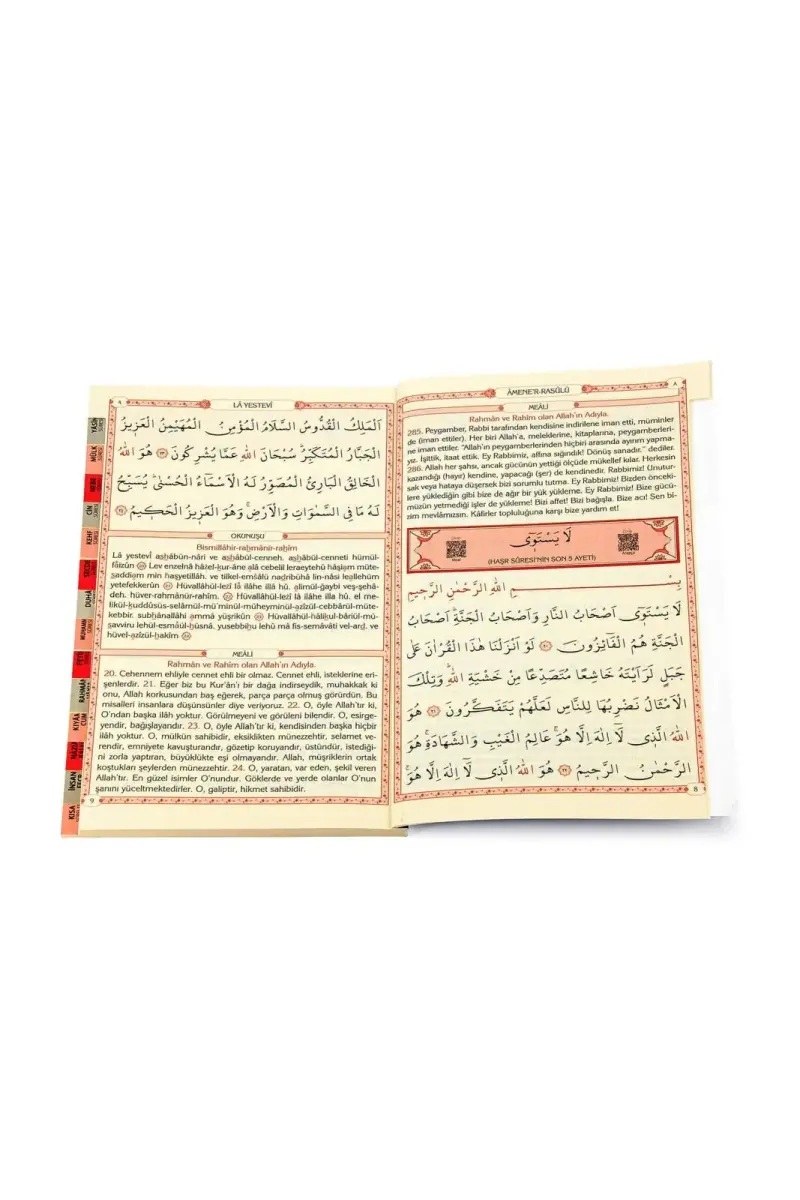 ٨
ÂMENE'R-RASÛLÜ
MEÂLİ
Rahmân ve Rahîm olan Allah'ın Adıyla.
285. Peygamber, Rabbi tarafından kendisine indirilene iman etti, müminler
de (iman ettiler). Her biri Allah'a, meleklerine, kitaplarına, peygamberleri-
ne iman ettiler. "Allah'ın peygamberlerinden hiçbiri arasında ayırım yapma-
yız. İşittik, itaat ettik. Ey Rabbimiz, affına sığındık! Dönüş sanadır." dediler.
286. Allah her şahsı, ancak gücünün yettiği ölçüde mükellef kılar. Herkesin
kazandığı (hayır) kendine, yapacağı (şer) de kendinedir. Rabbimiz! Unutur-
sak veya hataya düşersek bizi sorumlu tutma. Ey Rabbimiz! Bizden önceki-
lere yüklediğin gibi bize de ağır bir yük yükleme. Ey Rabbimiz! Bize gücü-
müzün yetmediği işler de yükleme! Bizi affet! Bizi bağışla. Bize acı! Sen bi-
zim mevlâmızsın. Kâfirler topluluğuna karşı bize yardım et!
لَا يَسْتَوٖى
(HAŞR SÛRESİ'NİN SON 5 ÂYETİ)
بِسْــــمِ اللهِ الرَّحْمٰنِ الرَّحٖيمِ
لَا يَسْتَوٖى اَصْحَابُ النَّارِ وَاَصْحَابُ الْجَنَّةِ اَصْحَابُ
الْجَنَّةِ هُمُ الْفَٓائِزُونَ ﴿٢٠﴾ لَوْ اَنْزَلْنَا هٰذَا الْقُرْاٰنَ عَلٰى
جَبَلٍ لَرَاَيْتَهُ خَاشِعًا مُتَصَدِّعًا مِنْ خَشْيَةِ اللهِ وَتِلْكَ
الْاَمْثَالُ نَضْرِبُهَا لِلنَّاسِ لَعَلَّهُمْ يَتَفَكَّرُونَ ﴿٢١﴾ هُوَ
اللهُ الَّذٖى لَٓا اِلٰهَ اِلَّا هُوَ عَالِمُ الْغَيْبِ وَالشَّهَادَةِ هُوَ
الرَّحْمٰنُ الرَّحٖيمُ ﴿٢٢﴾ هُوَ اللهُ الَّذٖى لَٓا اِلٰهَ اِلَّا هُوَ
8
٩
LÂ YESTEVÎ
اَلْمَلِكُ الْقُدُّوسُ السَّلَامُ الْمُؤْمِنُ الْمُهَيْمِنُ الْعَزٖيزُ
الْجَبَّارُ الْمُتَكَبِّرُ سُبْحَانَ اللهِ عَمَّا يُشْرِكُونَ ﴿٢٣﴾ هُوَ اللهُ
الْخَالِقُ الْبَارِئُ الْمُصَوِّرُ لَهُ الْاَسْمَٓاءُ الْحُسْنٰى يُسَبِّحُ
لَهُ مَا فِى السَّمٰوَاتِ وَالْاَرْضِ وَهُوَ الْعَزٖيزُ الْحَكٖيمُ ﴿٢٤﴾
OKUNUŞU
Bismillâhir-rahmânir-rahîm
Lâ yestevî ashâbün-nâri ve ashâbül-cenneh. ashâbül-cenneti hümül-
fâizûn Lev enzelnâ hâzel-kur-âne alâ cebelil leraeytehû hâşiam müte-
saddiam min haşyetillâh. ve tilkel-emsâlü nadribühâ lin-nâsi leallehüm
yetefekkerûn Hüvallâhül-lezî lâ ilâhe illâ hû. âlimül-ğaybi veş-şehâ-
deh. hüver-rahmânür-rahîm. Hüvallâhül-lezî lâ ilâhe illâ hû. el me-
likül-kuddûsüs-selâmül-mü'minül-müheyminül-azîzül-cebbârül-müte-
kebbir. subhânallâhi ammâ yüşrikûn Hüvallâhül-hâlikul-bâriül-mü-
savviru lehül-esmâül-hüsnâ. yusebbihu lehû mâ fis-semâvâti vel-ard. ve
hüvel-azîzül-hakîm
MEÂLİ
Rahmân ve Rahîm olan Allah'ın Adıyla.
20. Cehennem ehliyle cennet ehli bir olmaz. Cennet ehli, isteklerine eri-
şenlerdir. 21. Eğer biz bu Kur'ân'ı bir dağa indirseydik, muhakkak ki
onu, Allah korkusundan baş eğerek, parça parça olmuş görürdün. Bu
misalleri insanlara düşünsünler diye veriyoruz. 22. O, öyle Allah'tır ki,
O'ndan başka ilâh yoktur. Görülmeyeni ve görüleni bilendir. O, esirge-
yendir, bağışlayandır. 23. O, öyle Allah'tır ki, kendisinden başka hiçbir
ilâh yoktur. O, mülkün sahibidir, eksiklikten münezzehtir, selamet ve-
rendir, emniyete kavuşturandır, gözetip koruyandır, üstündür, istediği-
ni zorla yaptıran, büyüklükte eşi olmayandır. Allah, müşriklerin ortak
koştukları şeylerden münezzehtir. 24. O, yaratan, var eden, şekil veren
Allah'tır. En güzel isimler O'nundur. Göklerde ve yerde olanlar O'nun
şanını yüceltmektedirler. O, galiptir, hikmet sahibidir.
9
YÂSÎN
MÜLK
NEBE
CİN
KEHF
SECDE
DUHÂ
MUHAMM
FETİH
RAHMÂN
KIYÂM
İNSAN
KISA